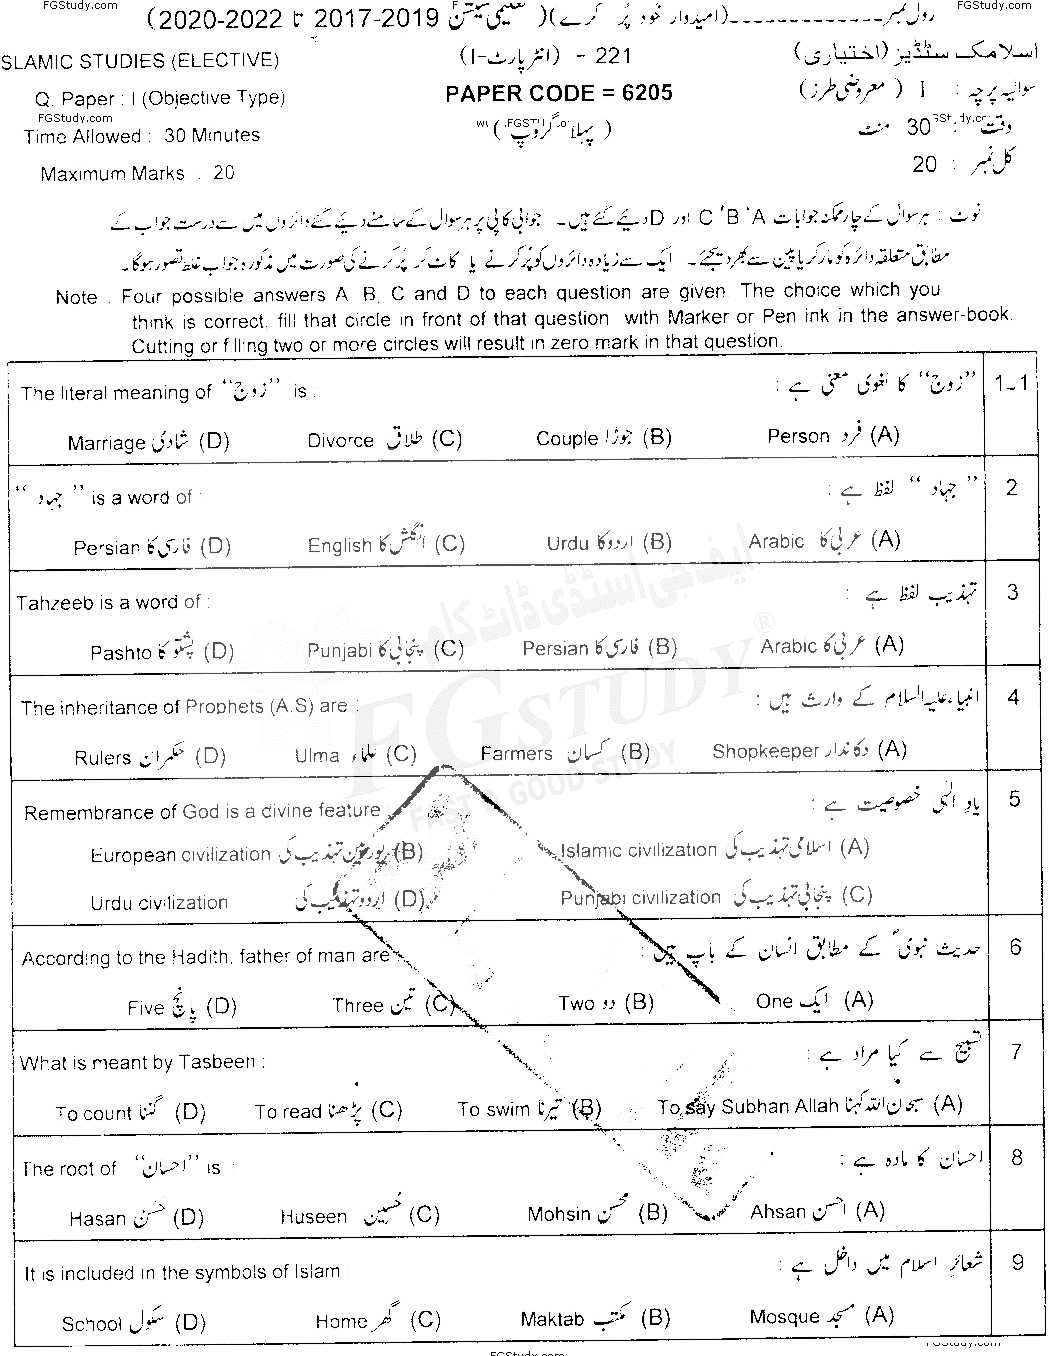 FGStudy.com FGStudy.com
رول نمبر------------------(امیدوار خود پُر کرے)( تعلیمی سیشن 2017-2019 تا 2020-2022)
SLAMIC STUDIES (ELECTIVE) (انٹر پارٹ-I) - 221 اسلامک سٹڈیز (اختیاری)
Q. Paper : I (Objective Type) PAPER CODE = 6205 سوالیہ پرچہ : I ( معروضی طرز)
FGStudy.com
Time Allowed : 30 Minutes ( پہلا گروپ ) وقت : 30 منٹ
Maximum Marks : 20 کل نمبر : 20
نوٹ : ہر سوال کے چار ممکنہ جوابات A ' B ' C اور D دیئے گئے ہیں۔ جوابی کاپی پر ہر سوال کے سامنے دیئے گئے دائروں میں سے درست جواب کے
مطابق متعلقہ دائرہ کو مارکر یا پین سے بھر دیجئے۔ ایک سے زیادہ دائروں کو پُر کرنے یا کاٹ کر پُر کرنے کی صورت میں مذکورہ جواب غلط تصور ہوگا۔
Note : Four possible answers A, B, C and D to each question are given. The choice which you
think is correct, fill that circle in front of that question with Marker or Pen ink in the answer-book.
Cutting or filling two or more circles will result in zero mark in that question.
The literal meaning of "زوج" is : "زوج" کا لغوی معنی ہے : 1-1
Marriage شادی (D) Divorce طلاق (C) Couple جوڑا (B) Person فرد (A)
"جہاد" is a word of : "جہاد" لفظ ہے : 2
Persian فارسی کا (D) English انگلش کا (C) Urdu اردو کا (B) Arabic عربی کا (A)
Tahzeeb is a word of : تہذیب لفظ ہے : 3
Pashto پشتو کا (D) Punjabi پنجابی کا (C) Persian فارسی کا (B) Arabic عربی کا (A)
The inheritance of Prophets (A.S) are : انبیاء علیہ السلام کے وارث ہیں : 4
Rulers حکمران (D) Ulma علماء (C) Farmers کسان (B) Shopkeeper دکاندار (A)
Remembrance of God is a divine feature یادِ الٰہی خصوصیت ہے : 5
European civilization یورپین تہذیب کی (B) Islamic civilization اسلامی تہذیب کی (A)
Urdu civilization اردو تہذیب کی (D) Punjabi civilization پنجابی تہذیب کی (C)
According to the Hadith, father of man are حدیث نبویؐ کے مطابق انسان کے باپ ہیں : 6
Five پانچ (D) Three تین (C) Two دو (B) One ایک (A)
What is meant by Tasbeen : تسبیح سے کیا مراد ہے : 7
To count گننا (D) To read پڑھنا (C) To swim تیرنا (B) To say Subhan Allah سبحان اللہ کہنا (A)
The root of "احسان" is : احسان کا مادہ ہے : 8
Hasan حسن (D) Huseen حُسین (C) Mohsin محسن (B) Ahsan احسن (A)
It is included in the symbols of Islam شعائرِ اسلام میں داخل ہے : 9
School سکول (D) Home گھر (C) Maktab مکتب (B) Mosque مسجد (A)
ایف جی اسٹڈی ڈاٹ کام
FGSTUDY®
FAST & GOOD STUDY
FGStudy.com FGStudy.com